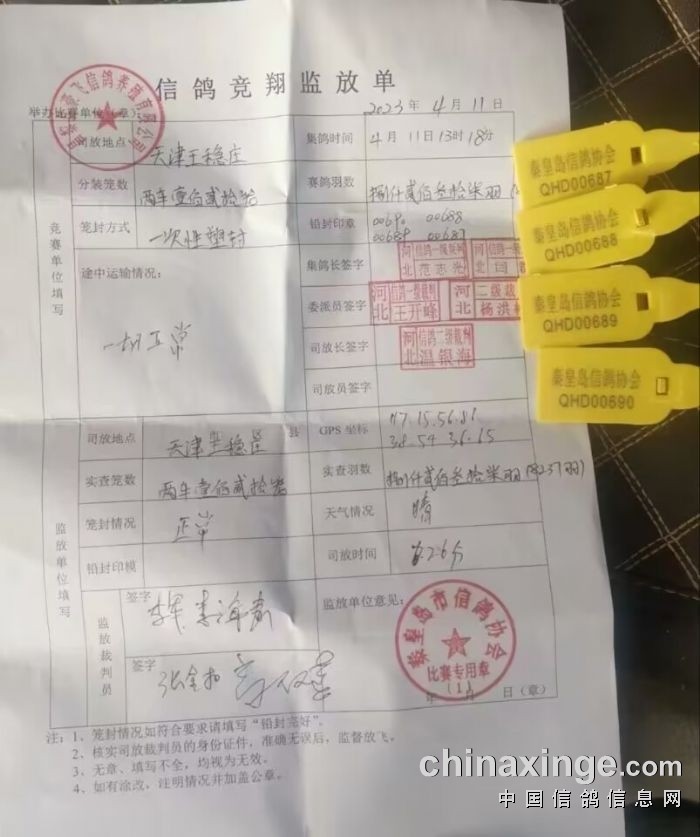 信鸽竞翔监放单
2023年4月11日
举办比赛单位（章）：
竞赛单位填写
司放地点 天津王稳庄 集鸽时间 4月11日13时18分
分装笼数 两车壹佰贰拾 赛鸽羽数 捌仟贰佰叁拾柒羽
笼封方式 一次性塑封 铅封印章 00690 00688
00689 00687
途中运输情况： 一切正常
集鸽长签字 河北 信鸽一级裁判 范志光
委派员签字 河北 信鸽一级裁判 王开峰 河北 二级裁 杨洪
司放长签字 河北 信鸽二级裁判 温银海
司放员签字
监放单位填写
司放地点 天津 王稳庄 县 GPS坐标 117.15.56.81
38.54 36.15
实查笼数 两车壹佰贰拾 实查羽数 捌仟贰佰叁拾柒羽(8237羽)
笼封情况 正常 天气情况 晴
铅封印模 司放时间 26分
监放裁判员
签字
签字 张金
监放单位意见：
秦皇岛市信鸽协会
比赛专用章
(1)
年 日（章）
注：1、笼封情况如符合要求请填写“铅封完好”。
2、核实司放裁判员的身份证件，准确无误后，监督放飞。
3、无章、填写不全，均视为无效。
4、如有涂改，注明情况并加盖公章。
秦皇岛信鸽协会
QHD00687
秦皇岛信鸽协会
QHD00688
秦皇岛信鸽协会
QHD00689
秦皇岛信鸽协会
QHD00690
chinaxinge.com
中国信鸽信息网